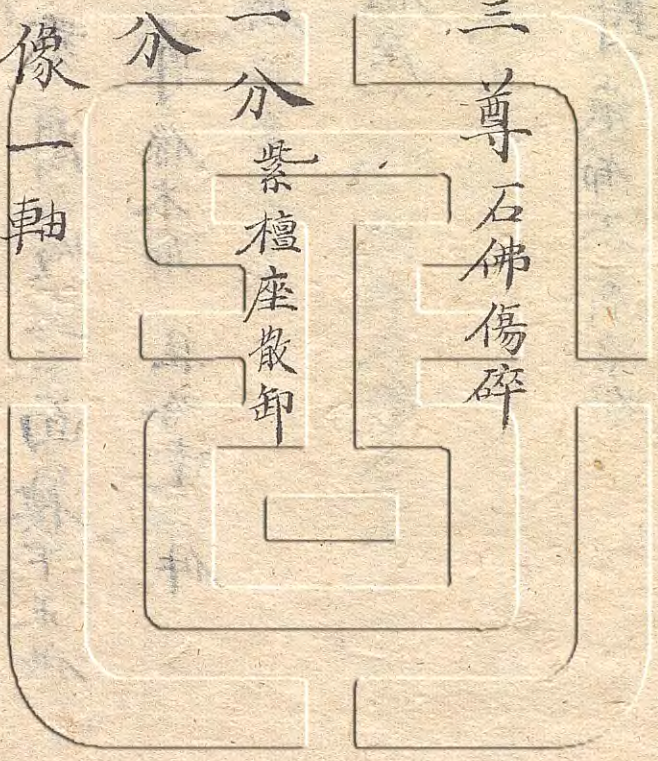 三尊石佛傷碎
一分紫檀座散卸
分
像一軸